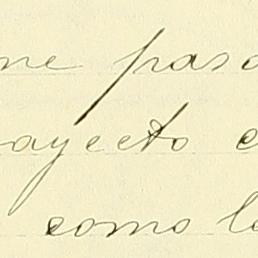 ne pasa
ayecto c
como le